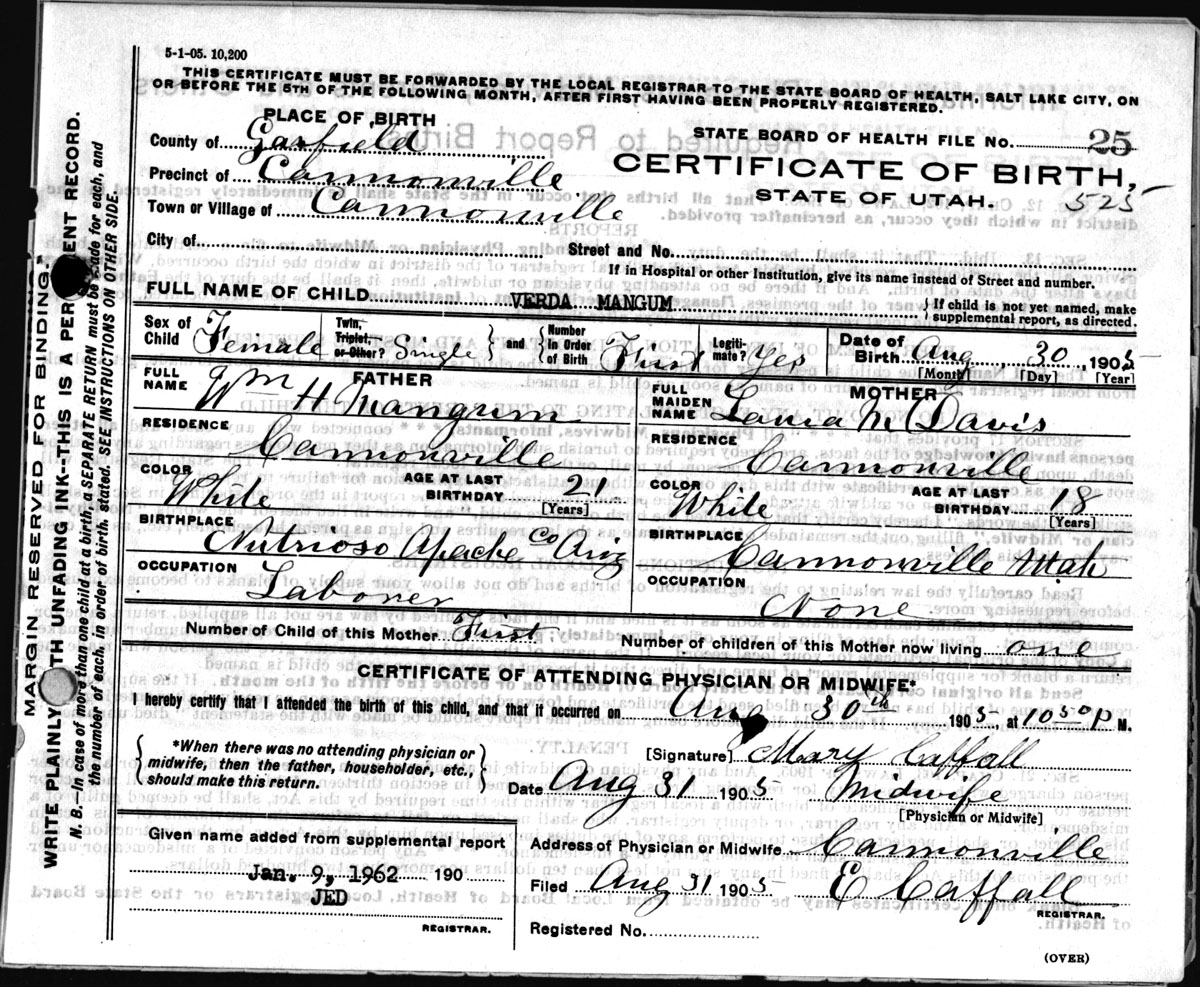 5-1-05. 10,200
THIS CERTIFICATE MUST BE FORWARDED BY THE LOCAL REGISTRAR TO THE STATE BOARD OF HEALTH, SALT LAKE CITY, ON
OR BEFORE THE 5TH OF THE FOLLOWING MONTH, AFTER FIRST HAVING BEEN PROPERLY REGISTERED.
PLACE OF BIRTH
County of Garfield
Precinct of Cannonville
Town or Village of Cannonville
City of
STATE BOARD OF HEALTH FILE No. 25
CERTIFICATE OF BIRTH,
STATE OF UTAH. 525
Street and No.
If in Hospital or other Institution, give its name instead of Street and number.
FULL NAME OF CHILD VERDA MANGUM
{ If child is not yet named, make
supplemental report, as directed.
Sex of Child Female
Twin, Triplet, or Other? Single } and { Number in Order of Birth First
Legiti-mate? Yes
Date of Birth Aug 30, 1905
[Month] [Day] [Year]
FATHER
FULL NAME Wm H Mangum
RESIDENCE Cannonville
COLOR White AGE AT LAST BIRTHDAY 21
[Years]
BIRTHPLACE Nutrioso Apache Co Ariz
OCCUPATION Laborer
MOTHER
FULL MAIDEN NAME M Davis
RESIDENCE Cannonville
COLOR White AGE AT LAST BIRTHDAY 18
[Years]
BIRTHPLACE Cannonville Utah
OCCUPATION None
Number of Child of this Mother First Number of children of this Mother now living one
CERTIFICATE OF ATTENDING PHYSICIAN OR MIDWIFE*
I hereby certify that I attended the birth of this child, and that it occurred on Aug 30th 1905 at 10 50 P M.
{ *When there was no attending physician or
midwife, then the father, householder, etc.,
should make this return. }
[Signature] Mary Caffall
Date Aug 31 1905 Midwife
[Physician or Midwife]
Given name added from supplemental report
Jan. 9, 1962 190
JED
REGISTRAR.
Address of Physician or Midwife Cannonville
Filed Aug 31 1905 E Caffall
REGISTRAR.
Registered No.
(OVER)
MARGIN RESERVED FOR BINDING.
WRITE PLAINLY WITH UNFADING INK--THIS IS A PERMANENT RECORD.
N. B.—In case of more than one child at a birth, a SEPARATE RETURN must be made for each, and
the number of each, in order of birth, stated. SEE INSTRUCTIONS ON OTHER SIDE.